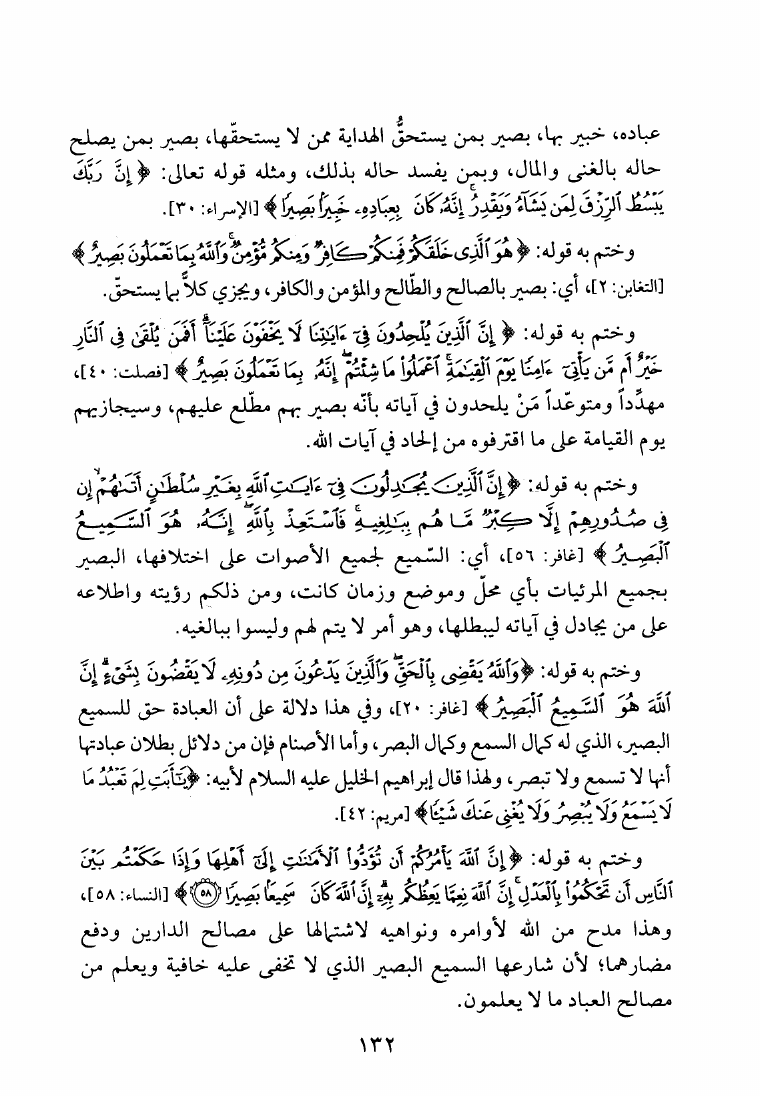 عباده، خبير بها، بصير بمن يستحقُّ الهداية ممن لا يستحقّها، بصير بمن يصلح
حاله بالغنى والمال، وبمن يفسد حاله بذلك، ومثله قوله تعالى: ﴿ إِنَّ رَبَّكَ
يَبْسُطُ ٱلرِّزْقَ لِمَن يَشَآءُ وَيَقْدِرُ ۚ إِنَّهُۥ كَانَ بِعِبَادِهِۦ خَبِيرًۢا بَصِيرًا ﴾ [الإسراء: ٣٠].
وختم به قوله: ﴿ هُوَ ٱلَّذِى خَلَقَكُمْ فَمِنكُمْ كَافِرٌ وَمِنكُم مُّؤْمِنٌ ۚ وَٱللَّهُ بِمَا تَعْمَلُونَ بَصِيرٌ ﴾
[التغابن: ٢]، أي: بصير بالصالح والطّالح والمؤمن والكافر، ويجزي كلاًّ بما يستحقّ.
وختم به قوله: ﴿ إِنَّ ٱلَّذِينَ يُلْحِدُونَ فِىٓ ءَايَـٰتِنَا لَا يَخْفَوْنَ عَلَيْنَآ ۗ أَفَمَن يُلْقَىٰ فِى ٱلنَّارِ
خَيْرٌ أَم مَّن يَأْتِىٓ ءَامِنًا يَوْمَ ٱلْقِيَـٰمَةِ ۚ ٱعْمَلُوا۟ مَا شِئْتُمْ ۖ إِنَّهُۥ بِمَا تَعْمَلُونَ بَصِيرٌ ﴾ [فصلت: ٤٠]،
مهدِّداً ومتوعّداً مَنْ يلحدون في آياته بأنّه بصير بهم مطّلع عليهم، وسيجازيهم
يوم القيامة على ما اقترفوه من إلحاد في آيات الله.
وختم به قوله: ﴿ إِنَّ ٱلَّذِينَ يُجَـٰدِلُونَ فِىٓ ءَايَـٰتِ ٱللَّهِ بِغَيْرِ سُلْطَـٰنٍ أَتَىٰهُمْ ۙ إِن
فِى صُدُورِهِمْ إِلَّا كِبْرٌ مَّا هُم بِبَـٰلِغِيهِ ۚ فَٱسْتَعِذْ بِٱللَّهِ ۖ إِنَّهُۥ هُوَ ٱلسَّمِيعُ
ٱلْبَصِيرُ ﴾ [غافر: ٥٦]، أي: السّميع لجميع الأصوات على اختلافها، البصير
بجميع المرئيات بأي محلّ وموضع وزمان كانت، ومن ذلكم رؤيته واطلاعه
على من يجادل في آياته ليبطلها، وهو أمر لا يتم لهم وليسوا ببالغيه.
وختم به قوله: ﴿وَٱللَّهُ يَقْضِى بِٱلْحَقِّ ۖ وَٱلَّذِينَ يَدْعُونَ مِن دُونِهِۦ لَا يَقْضُونَ بِشَىْءٍ ۗ إِنَّ
ٱللَّهَ هُوَ ٱلسَّمِيعُ ٱلْبَصِيرُ ﴾ [غافر: ٢٠]، وفي هذا دلالة على أن العبادة حق للسميع
البصير، الذي له كمال السمع وكمال البصر، وأما الأصنام فإن من دلائل بطلان عبادتها
أنها لا تسمع ولا تبصر، ولهذا قال إبراهيم الخليل عليه السلام لأبيه: ﴿يَـٰٓأَبَتِ لِمَ تَعْبُدُ مَا
لَا يَسْمَعُ وَلَا يُبْصِرُ وَلَا يُغْنِى عَنكَ شَيْـًٔا﴾ [مريم: ٤٢].
وختم به قوله: ﴿ إِنَّ ٱللَّهَ يَأْمُرُكُمْ أَن تُؤَدُّوا۟ ٱلْأَمَـٰنَـٰتِ إِلَىٰٓ أَهْلِهَا وَإِذَا حَكَمْتُم بَيْنَ
ٱلنَّاسِ أَن تَحْكُمُوا۟ بِٱلْعَدْلِ ۚ إِنَّ ٱللَّهَ نِعِمَّا يَعِظُكُم بِهِۦٓ ۗ إِنَّ ٱللَّهَ كَانَ سَمِيعًۢا بَصِيرًا ۝٥٨ ﴾ [النساء: ٥٨]،
وهذا مدح من الله لأوامره ونواهيه لاشتمالها على مصالح الدارين ودفع
مضارهما؛ لأن شارعها السميع البصير الذي لا تخفى عليه خافية ويعلم من
مصالح العباد ما لا يعلمون.
١٣٢